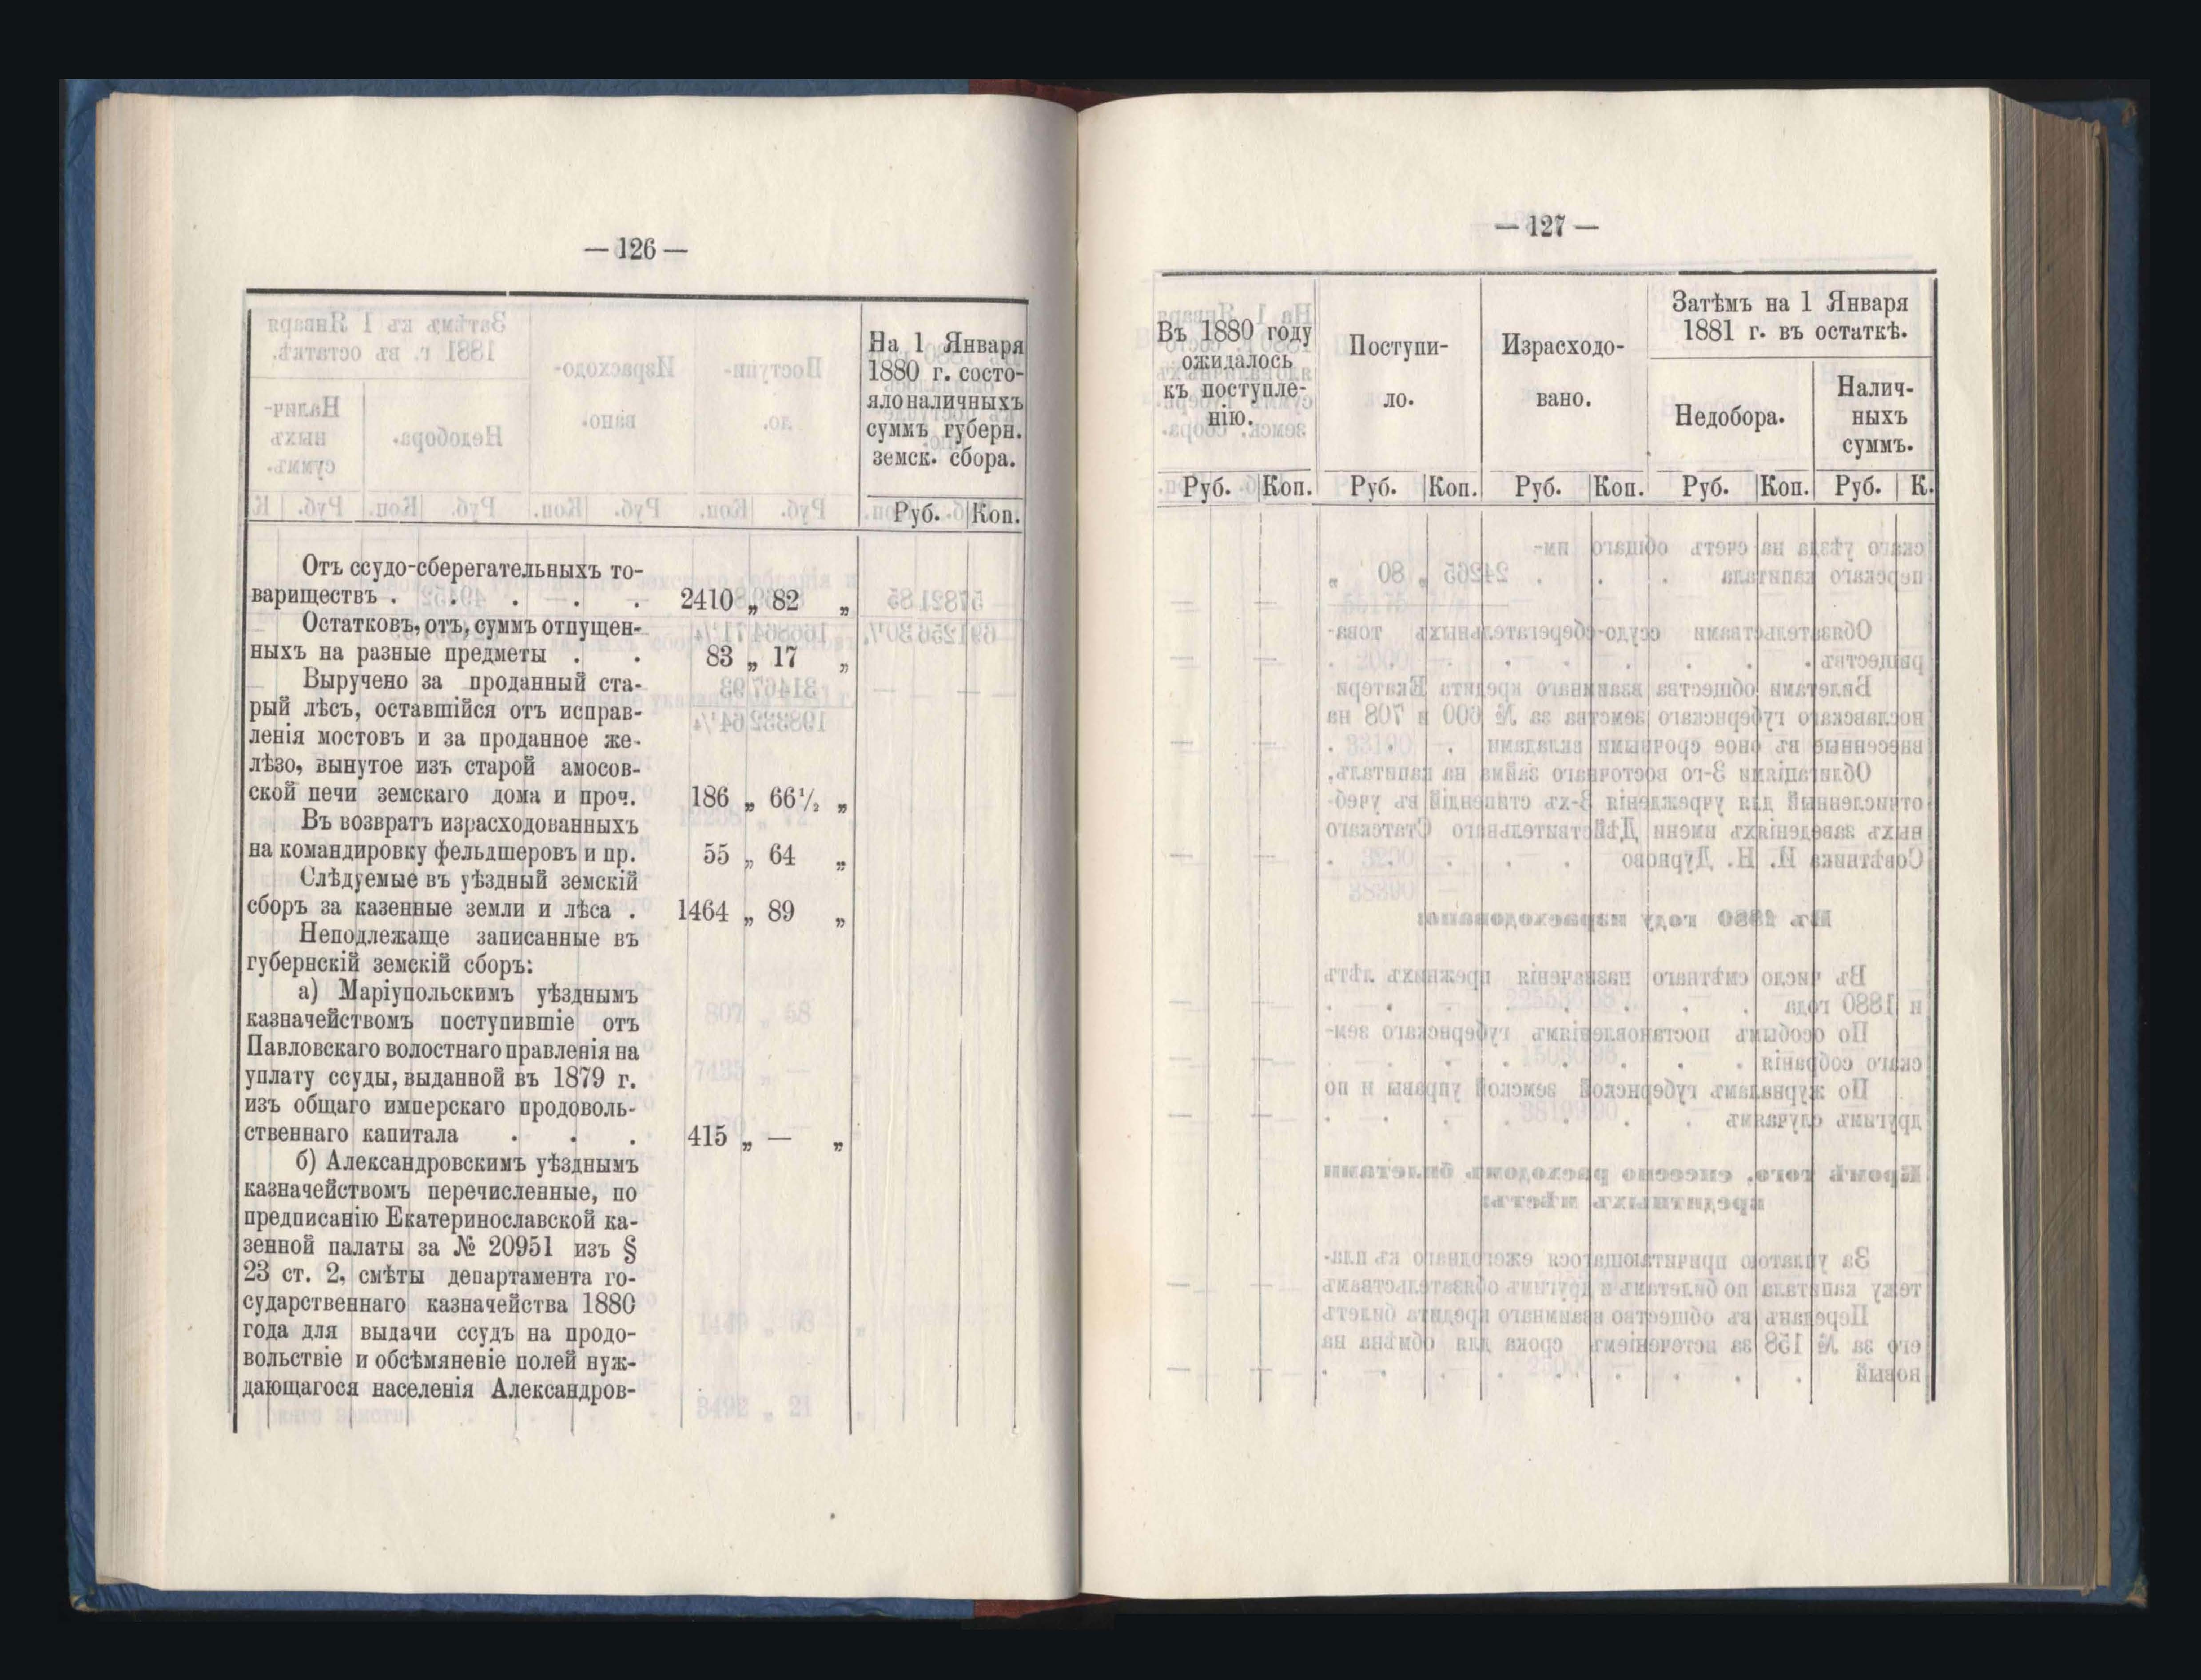 — 126 —
На 1 Января
1880 г. состо-
яло наличныхъ
суммъ губерн.
земск. сбора.
Руб. Коп.
Отъ ссудо-сберегательныхъ то-
вариществъ . . . . . 2410 „ 82 „
Остатковъ, отъ, суммъ отпущен-
ныхъ на разные предметы . . 83 „ 17 „
Выручено за проданный ста-
рый лѣсъ, оставшійся отъ исправ-
ленія мостовъ и за проданное же-
лѣзо, вынутое изъ старой амосов-
ской печи земскаго дома и проч. 186 „ 66½ „
Въ возвратъ израсходованныхъ
на командировку фельдшеровъ и пр. 55 „ 64 „
Слѣдуемые въ уѣздный земскій
сборъ за казенные земли и лѣса . 1464 „ 89 „
Неподлежаще записанные въ
губернскій земскій сборъ:
а) Маріупольскимъ уѣзднымъ
казначействомъ поступившіе отъ
Павловскаго волостнаго правленія на
уплату ссуды, выданной въ 1879 г.
изъ общаго имперскаго продоволь-
ственнаго капитала . . . 415 „ — „
б) Александровскимъ уѣзднымъ
казначействомъ перечисленные, по
предписанію Екатеринославской ка-
зенной палаты за № 20951 изъ §
23 ст. 2, смѣты департамента го-
сударственнаго казначейства 1880
года для выдачи ссудъ на продо-
вольствіе и обсѣмяненіе полей нуж-
дающагося населенія Александров-
— 127 —
Въ 1880 году
ожидалось
къ поступле-
нію.
Поступи-
ло.
Израсходо-
вано.
Затѣмъ на 1 Января
1881 г. въ остаткѣ.
Недобора.
Налич-
ныхъ
суммъ.
Руб. Коп. Руб. Коп. Руб. Коп. Руб. Коп. Руб. К.